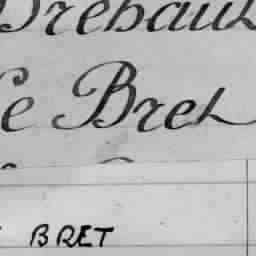 Drebaut
Le Bret
BRET